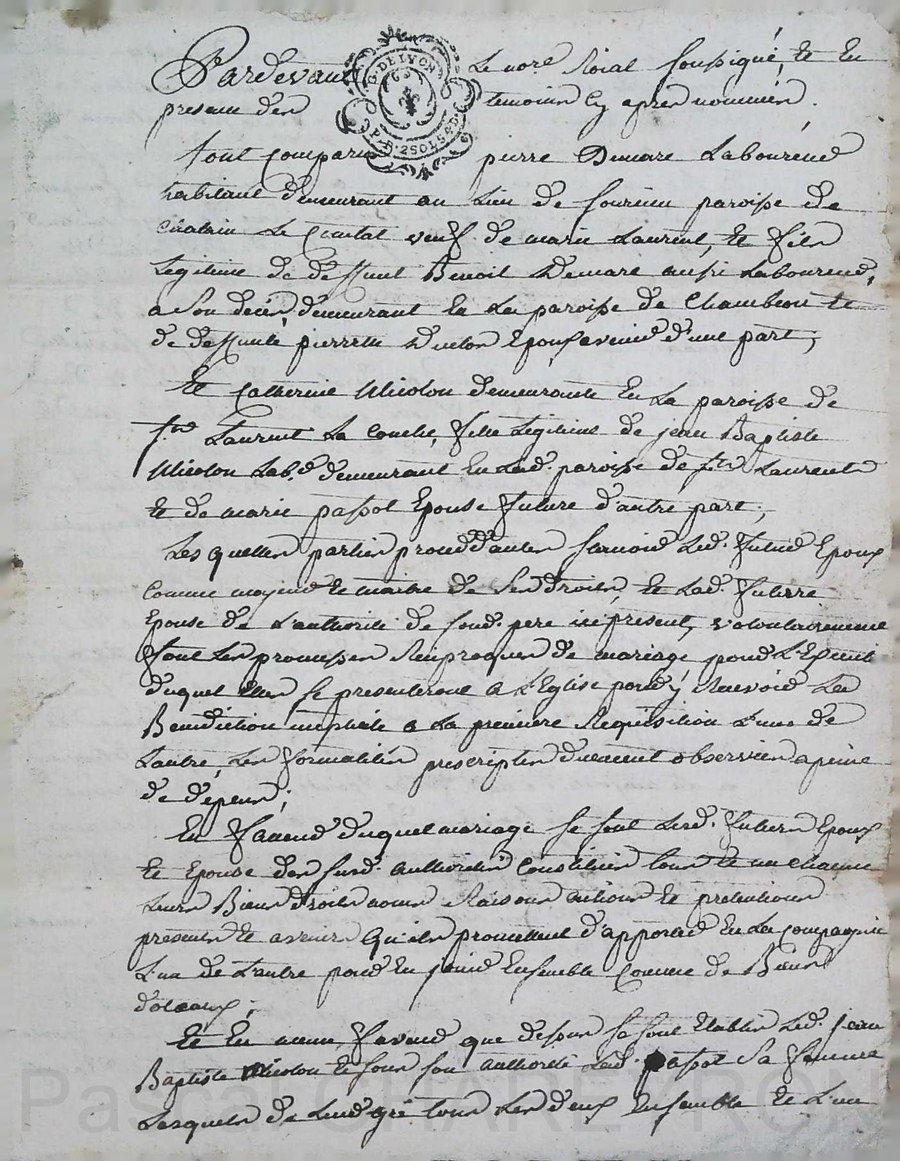 Pardevant Le nore Roial soussigné, Et En
G. DE LYON
P. P. 2 SOLS 4 D.
presance des temoins Cy apres nommés.
sont comparus pierre Demare Laboureur
habitant demeurant au Lieu de parroisse de
Chatain Le Comtal veuf de marie Laurent, Et fils
Legitime de deffunt Benoit Demare aussi Laboureur,
a Son decès, demeurant En La paroisse de Chambeon Et
de deffunte pierrette Epoux avenir d'une part,
Et Catherine Micolon demeurante En La paroisse de
st Laurent La Conche, fille Legitime de jean Baptiste
Micolon Lab.r demeurant En Lad. paroisse de st Laurent
Et de marie passot Epouse future d'autre part,
Les quelles parties procedantes sçavoir Led. futur Epoux
comme majeur Et maitre de Ses droits, Et Lad. future
Epouse de L'authorité de sond. pere icy present, volontairement
font Les promesses Reciproques de mariage pour L'Effet
duquel Elles se presenteront a L'Eglise pour y Recevoir La
Benediction nuptiale a La premiere Requisition L'un de
L'autre, Les formalités prescriptes duement observées apeine
de depens;
En faveur duquel mariage se sont Lesd. futurs Epoux
Et Epouse des susd. authorités Constitués tous Et un chacun
Leurs Biens droits noms Raisons actions Et pretentions
presents Et avenir Qu'ils promettent d'apporter En La compagnie
L'un de L'autre pour En jouir Ensemble Comme de Biens
dotaux;
Et En meme faveur que dessus se sont Etablis Led. jean
Baptiste Micolon Et sous son authorité Lad. passot Sa femme
Lesquels de Leur gré tous Les deux Ensemble Et L'un
Pascal CHAREYRON